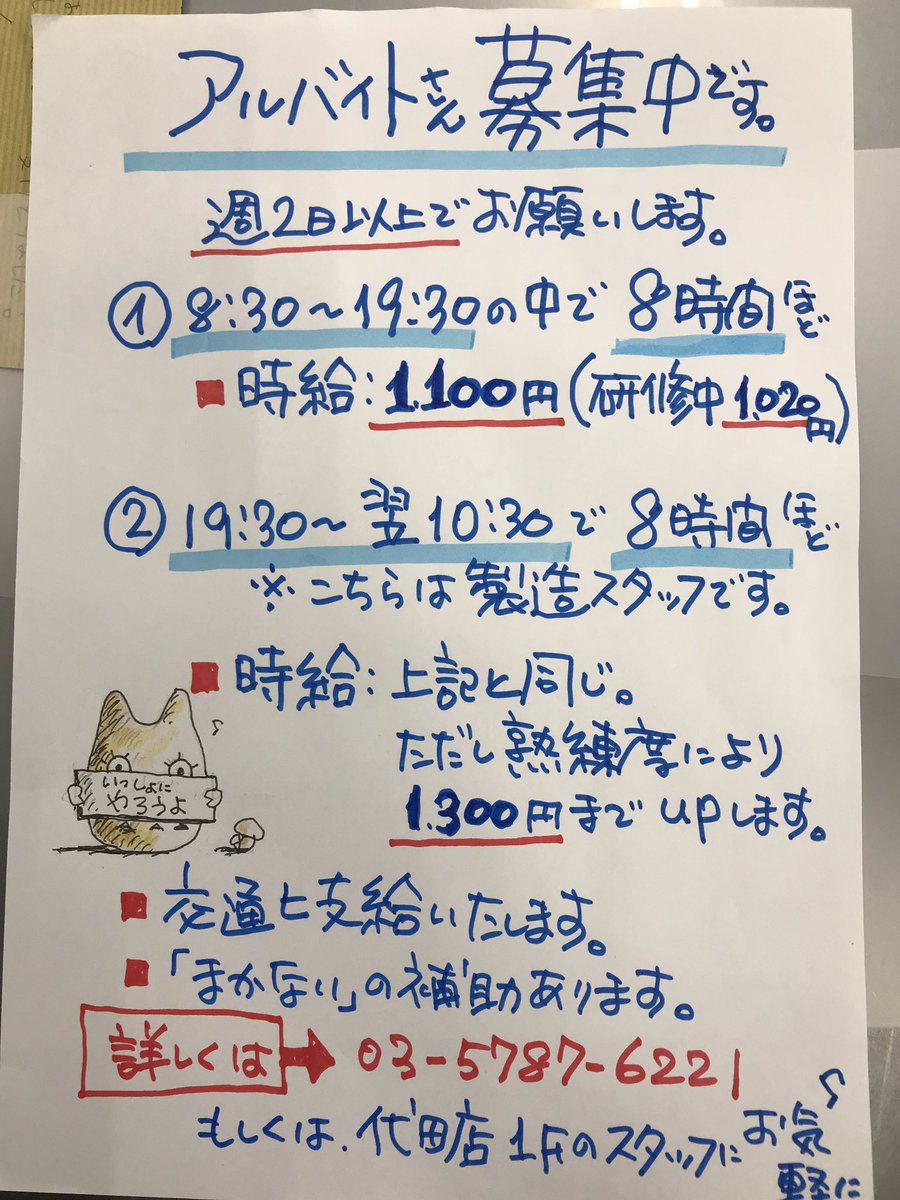 アルバイトさん募集中です。
週2日以上でお願いします。
① 8:30〜19:30の中で 8時間ほど
■時給:1.100円(研修中1.020円)
② 19:30〜翌10:30で 8時間ほど
※こちらは製造スタッフです。
■時給:上記と同じ。
ただし熟練度により
1.300円までupします。
いっしょに
やろうよ
■交通ヒ支給いたします。
■「まかない」の補助あります。
詳しくは→03-5787-6221
もしくは、代田店1Fのスタッフに お気軽に